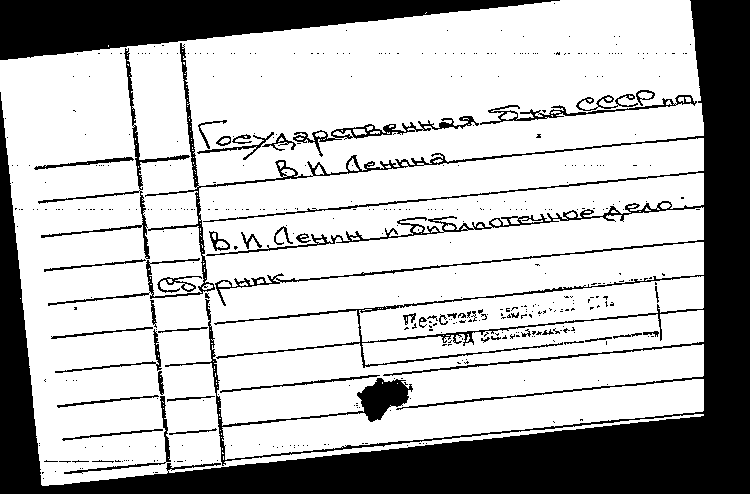 Государственная б-ка СССР им.
В.И. Ленина
В.И. Ленин и библиотечное дело:
Сборник.
Перечень
под заглавием